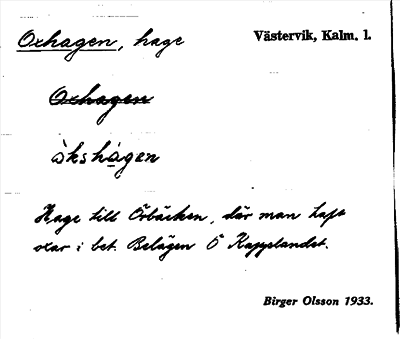 Oxhagen, hage
Västervik, Kalm. l.
Oxhagen
òkshágen
Hage till Örbäcken, där man haft
oxar i bet. Belägen Ö Kappelandet.
Birger Olsson 1933.